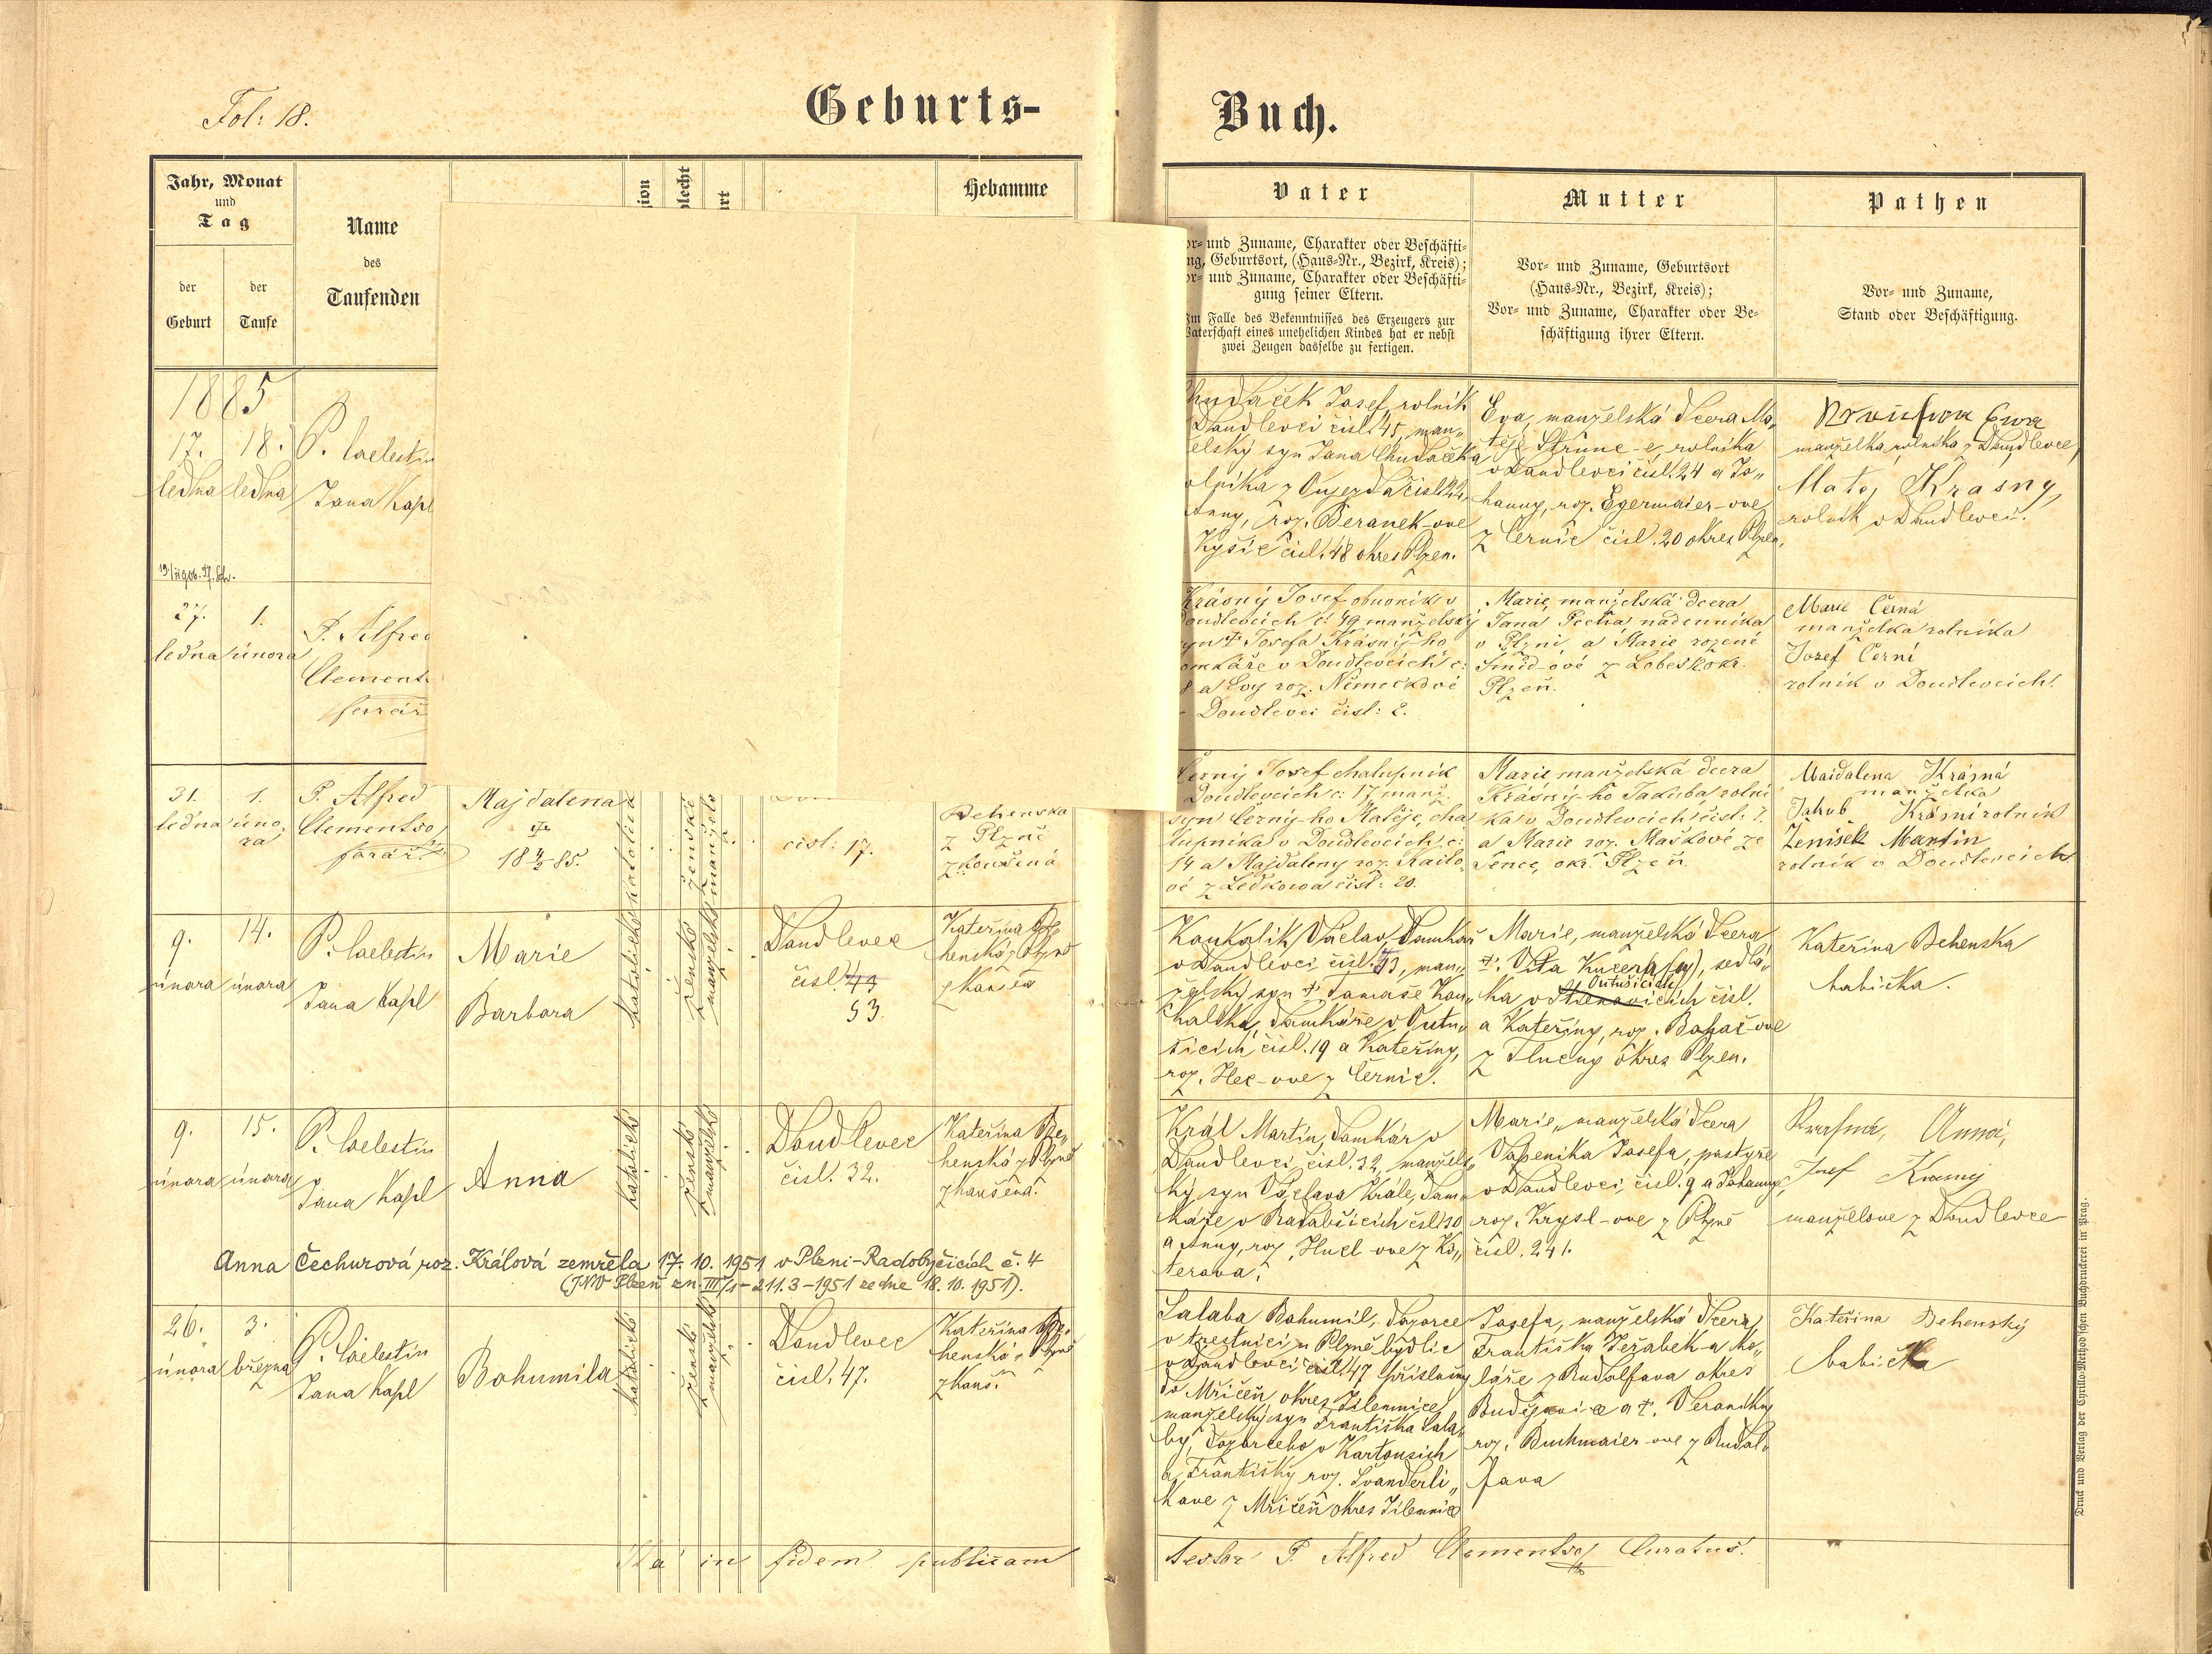 Fol: 18.
Geburts-
Buch.
Jahr, Monat
und
Tag
der
Geburt
der
Taufe
Name
des
Taufenden
Hebamme
Vater
und Zuname, Charakter oder Beschäfti-
Geburtsort, (Haus-Nr., Bezirk, Kreis);
und Zuname, Charakter oder Beschäfti-
gung seiner Eltern.
Falle des Bekenntnisses des Erzeugers zur
Vaterschaft eines unehelichen Kindes hat er nebst
zwei Zeugen dasselbe zu fertigen.
Mutter
Vor- und Zuname, Geburtsort
(Haus-Nr., Bezirk, Kreis);
Vor- und Zuname, Charakter oder Be-
schäftigung ihrer Eltern.
Pathen
Vor- und Zuname,
Stand oder Beschäftigung.
1885
17.
ledna
18.
ledna
P. Caelestin
Jana Kapl
Chudaček Josef, rolnik
Daudlevci čisl. 45, man„
elský syn Jana Chudačka
olnika z Oujezda čisl. 22,
Anny, roz. Beranek-ove
Kyšic čisl. 48 okres Plzen.
Eva, manželská dcera Ma„
těje Strunc-e, rolnika
v Daudlevci čisl. 24 a Jo„
hanny, roz. Egermaier-ove
z Černic čisl. 20 okres Plzen.
manželka rolnika z Daudlevec,
Matej Krasny,
rolnik v Daudlevci.
27.
ledna
1.
února
P. Alfred
Clementso
farář
Krásný Josef obuvník v
Doudlevcích č: 49 manželský
syn † Josefa Krásný-ho
omkáře v Doudlevcích č:
8 a Evy roz. Němečkové
Doudlevci čisl: 2.
Marie, manželská dcera
Jana Pecha, nádenníka
v Plzni, a Marie rozené
Šmíd-ové z Lobes okr.
Plzeň.
Marie Černá
manželka rolníka
Josef Černí
rolník v Doudlevcích.
31.
ledna
1.
února
P. Alfred
Clementso
farář.
Majdalena
18 4/2 85.
čisl: 17.
Behenska
z Plzně
zkoušená
Černý Josef chalupník
Doudlevcích č: 17 manž.
syn Černý-ho Matěje, cha
lupníka v Doudlevcích č:
14 a Majdaleny roz. Railo
vé z Ledkowa čisl: 20.
Marie manželská dcera
Krásný-ho Jakuba, rolní
ka v Doudlevcích čisl: 7.
a Marie roz. Maškové ze
Senec, okr. Plzeň.
Maidalena Krásná
manželka
Jakub Krásní rolník
Ženíšek Martin
rolník v Doudlevcích
9.
února
14.
února
P. Caelestin
Jana Kapl
Marie
Barbora
katolické
ženské
manželské
Daudlevec
čisl. 44
53
Kateřina Be„
henská z Plzně
zkouš
Koukolik Václav, Domkař
v Daudlevci čisl. 53, man„
želský syn † Tomaše Kou„
kalika, Domkáře v Outu„
šicich čisl. 19 a Kateřiny,
roz. Hec-ove z Černic.
Marie, manželská dcera
†. Vita Kucera (y), sedlá„
ka v Outušicich čisl.
a Kateřiny, roz. Bohač-ove
z Tlucny okres Plzen.
Kateřina Behenska
babička.
9.
února
15.
února
P. Caelestin
Jana Kapl
Anna
katolické
ženské
manželské
Daudlevec
čisl. 32.
Kateřina Be„
henská z Plzně
zkoušená.
Král Martin, Domkár v
Daudlevci, čisl. 32, manžels„
ký syn Václava Krále, Dom„
káře v Radabšicich čisl. 10
a Anny, roz. Hucl-ove z Ko„
terova.
Marie, manželská dcera
Vapenika Josefa, pastyře
v Daudlevci, čisl. 9 a Johanny,
roz. Krysl-ove z Plzně
čisl. 241.
Anna,
Josef Krasny
manželove z Daudlevce
Anna Čechurová, roz. Králová zemřela 17. 10. 1951 v Plzni-Radobyčicích č. 4
(JNV Plzeň zn. III/1-211.3-1951 ze dne 18. 10. 1951).
26.
února
3.
března
P. Caelestin
Jana Kapl
Bohumila
katolické
ženské
manželské
Daudlevec
čisl. 47.
Kateřina Be„
henská z Plzně
zkouš.
Salaba Bohumil, Dozorce
v trestnici u Plzně bydlic
v Daudlevci čisl. 47 přislušny
do Mřičeň okres Jilemnice
manželský syn Františka Sala„
by, dozorceho v Kartousich
a Františky roz. Švanderli„
kove z Mřičeň okres Jilemnice
Josefa, manželská dcera
Františka Jeřabek-a ko„
láře z Rudolfova okres
Budějovice a †. Veroniky
roz. Buchmaier-ove z Rudol„
fova
Kateřina Behenský
babička
Ita in fidem publicam
testor P. Alfred Clementso Curatus.
Druck und Verlag der Cyrillo-Method'schen Buchdruckerei in Prag.